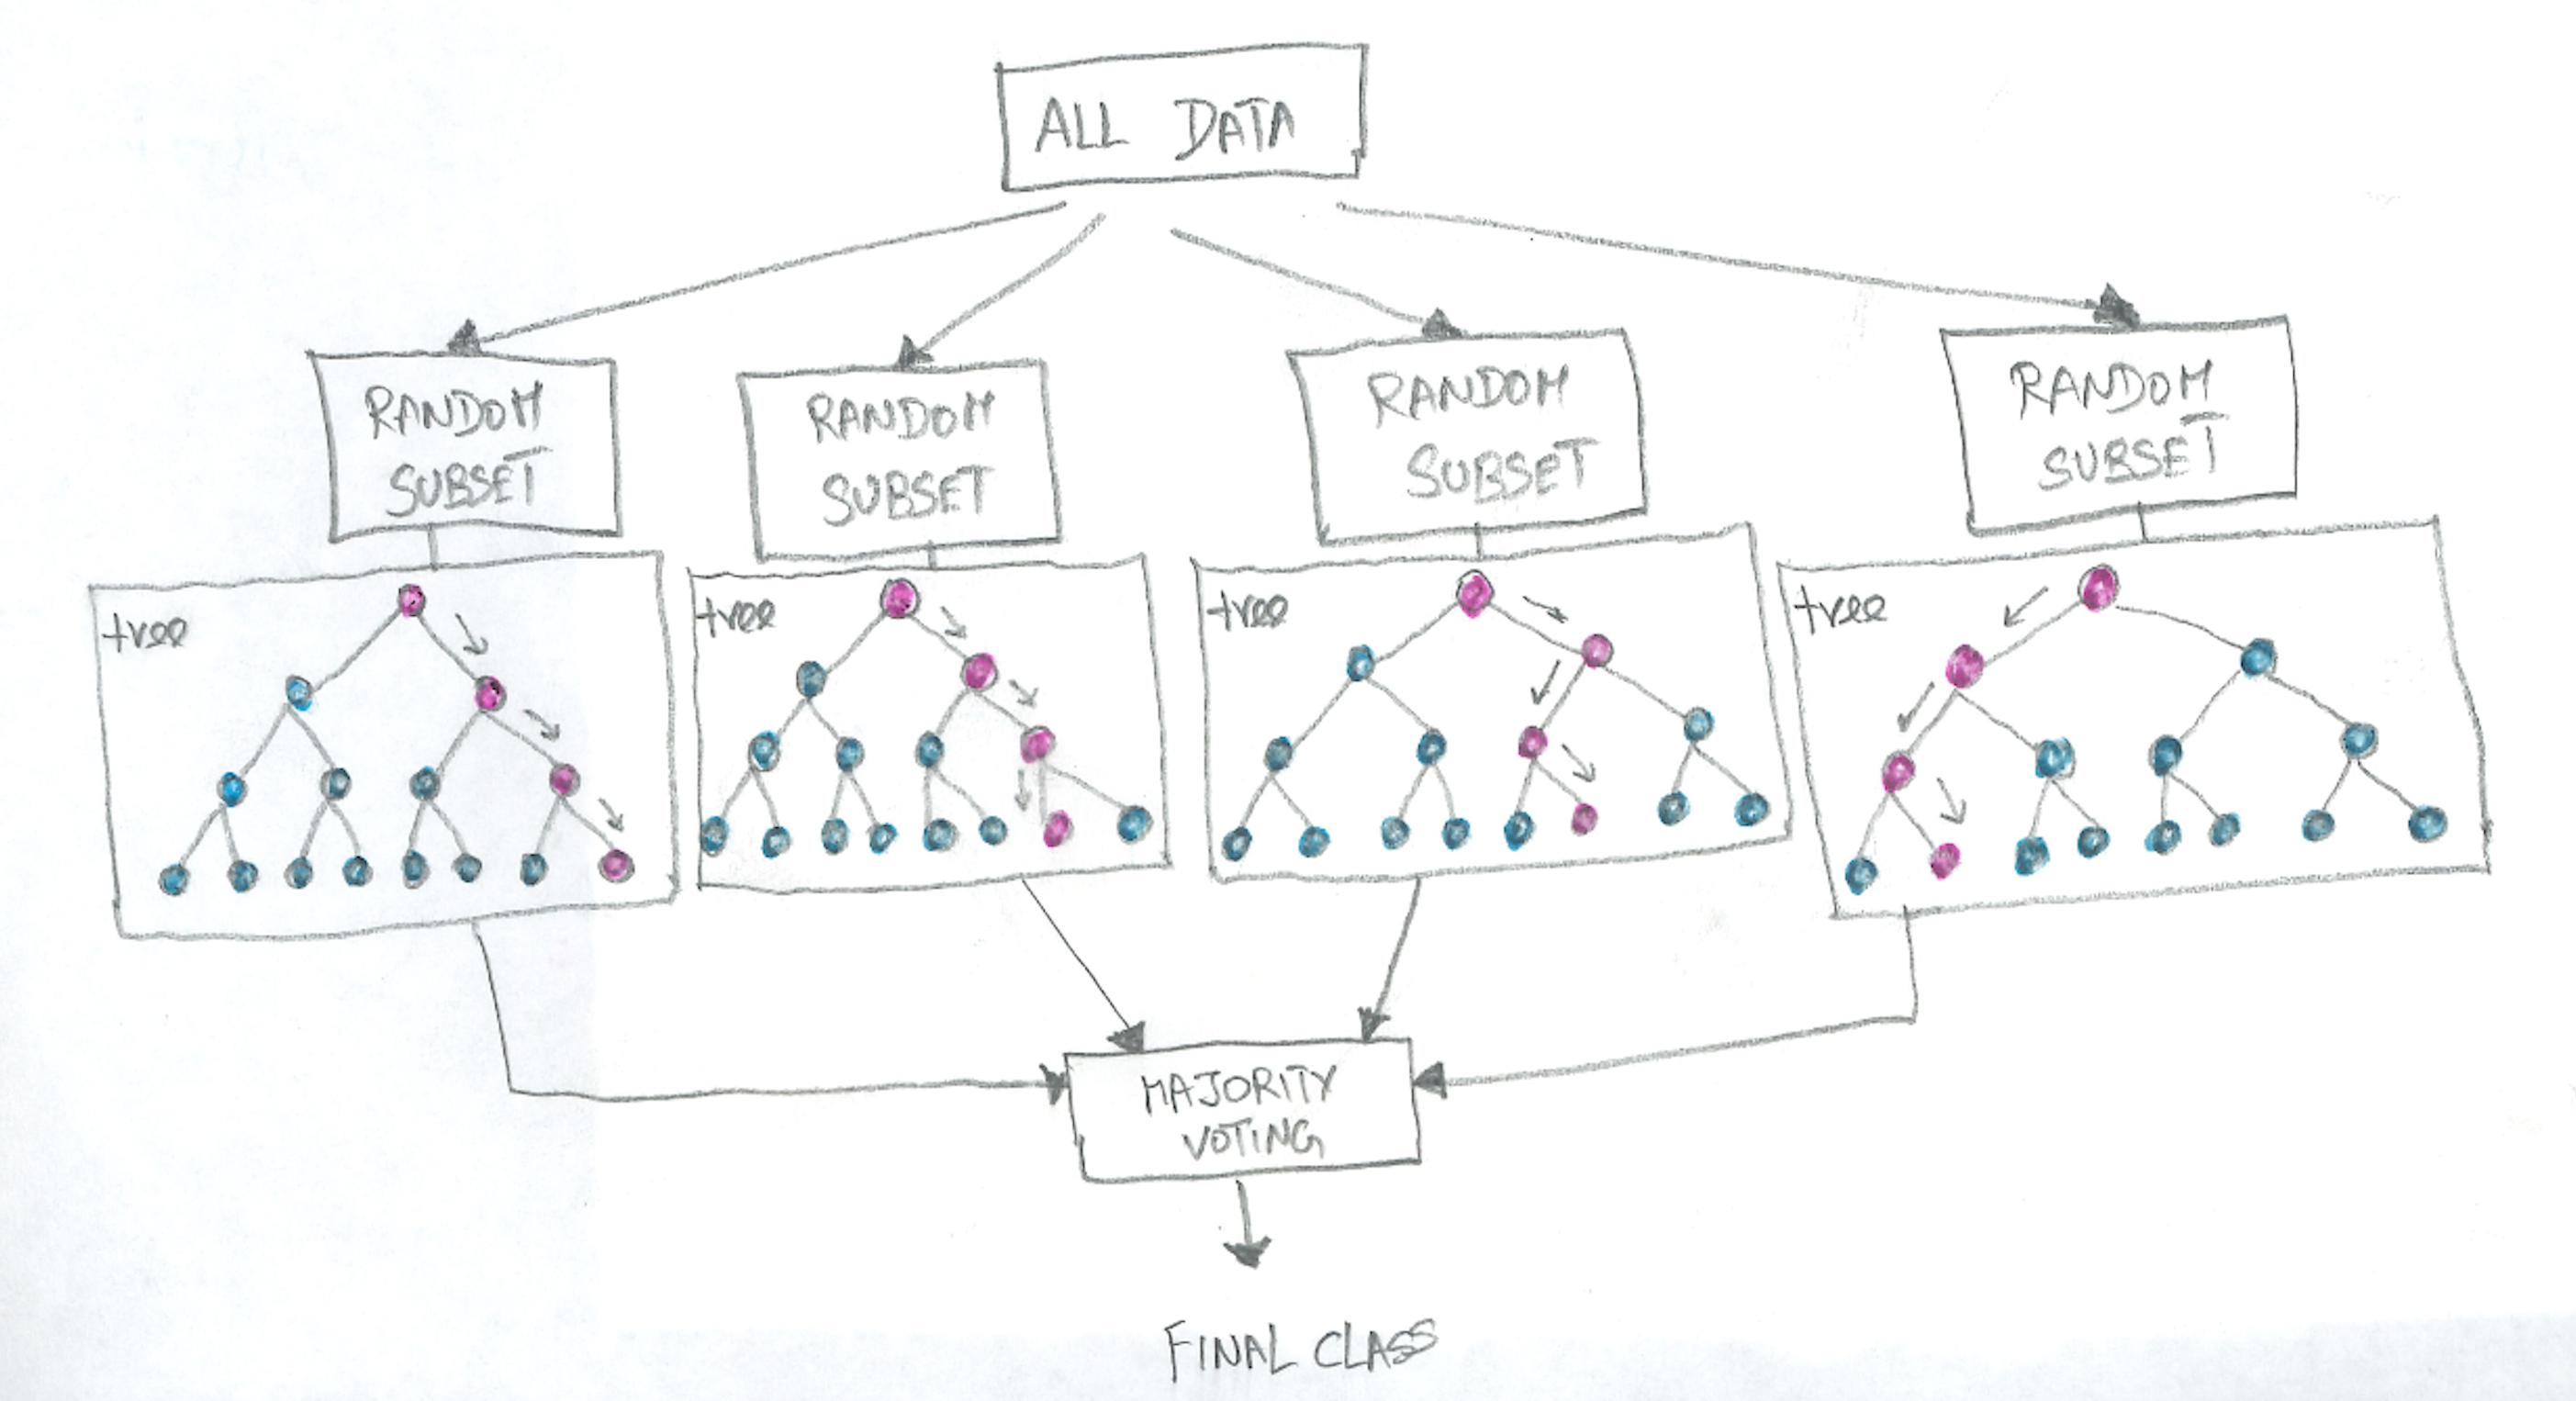 ALL DATA
RANDOM
SUBSET
RANDOM
SUBSET
RANDOM
SUBSET
RANDOM
SUBSET
tree
tree
tree
tree
MAJORITY
VOTING
FINAL CLASS